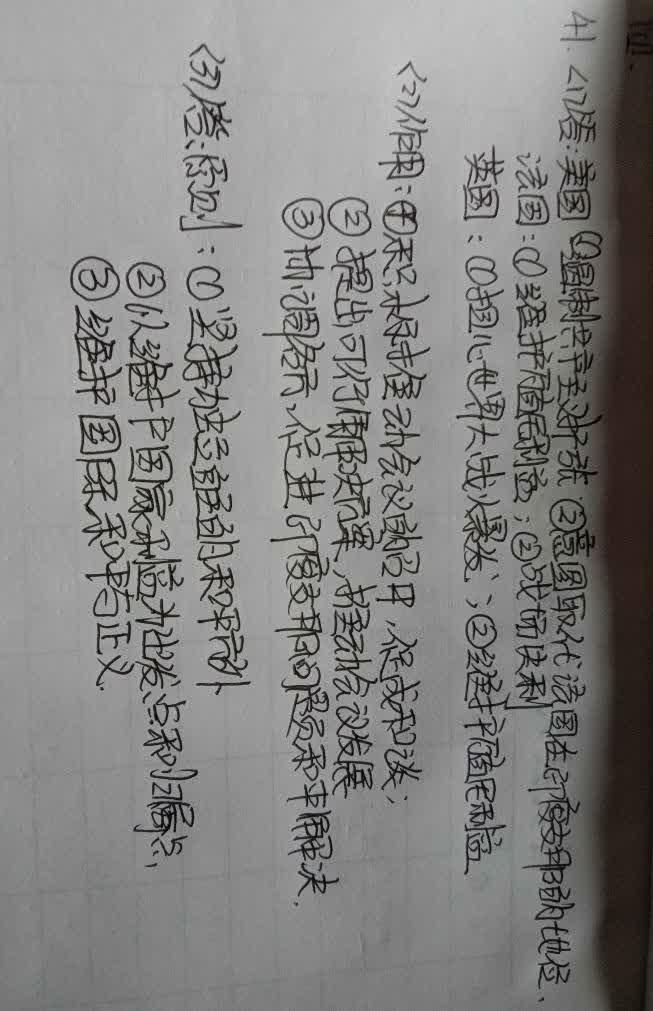 41. <1>答:美国 ①遏制共产主义扩张 ②意图取代法国在印度支那的地位.
法国:①维护殖民利益;②战场失利
英国:①担心世界大战火爆发;②维护殖民利益
<2>作用:①积极推动会议记中,促成和谈;
②提出可行解决方案,推动会议发展
③协调各方,促进印度支那问题的和平解决.
<3>答:原则:①坚持独立自主的和平方针
②以维护国家利益为出发点和归宿点,
③维护国际和平与正义.